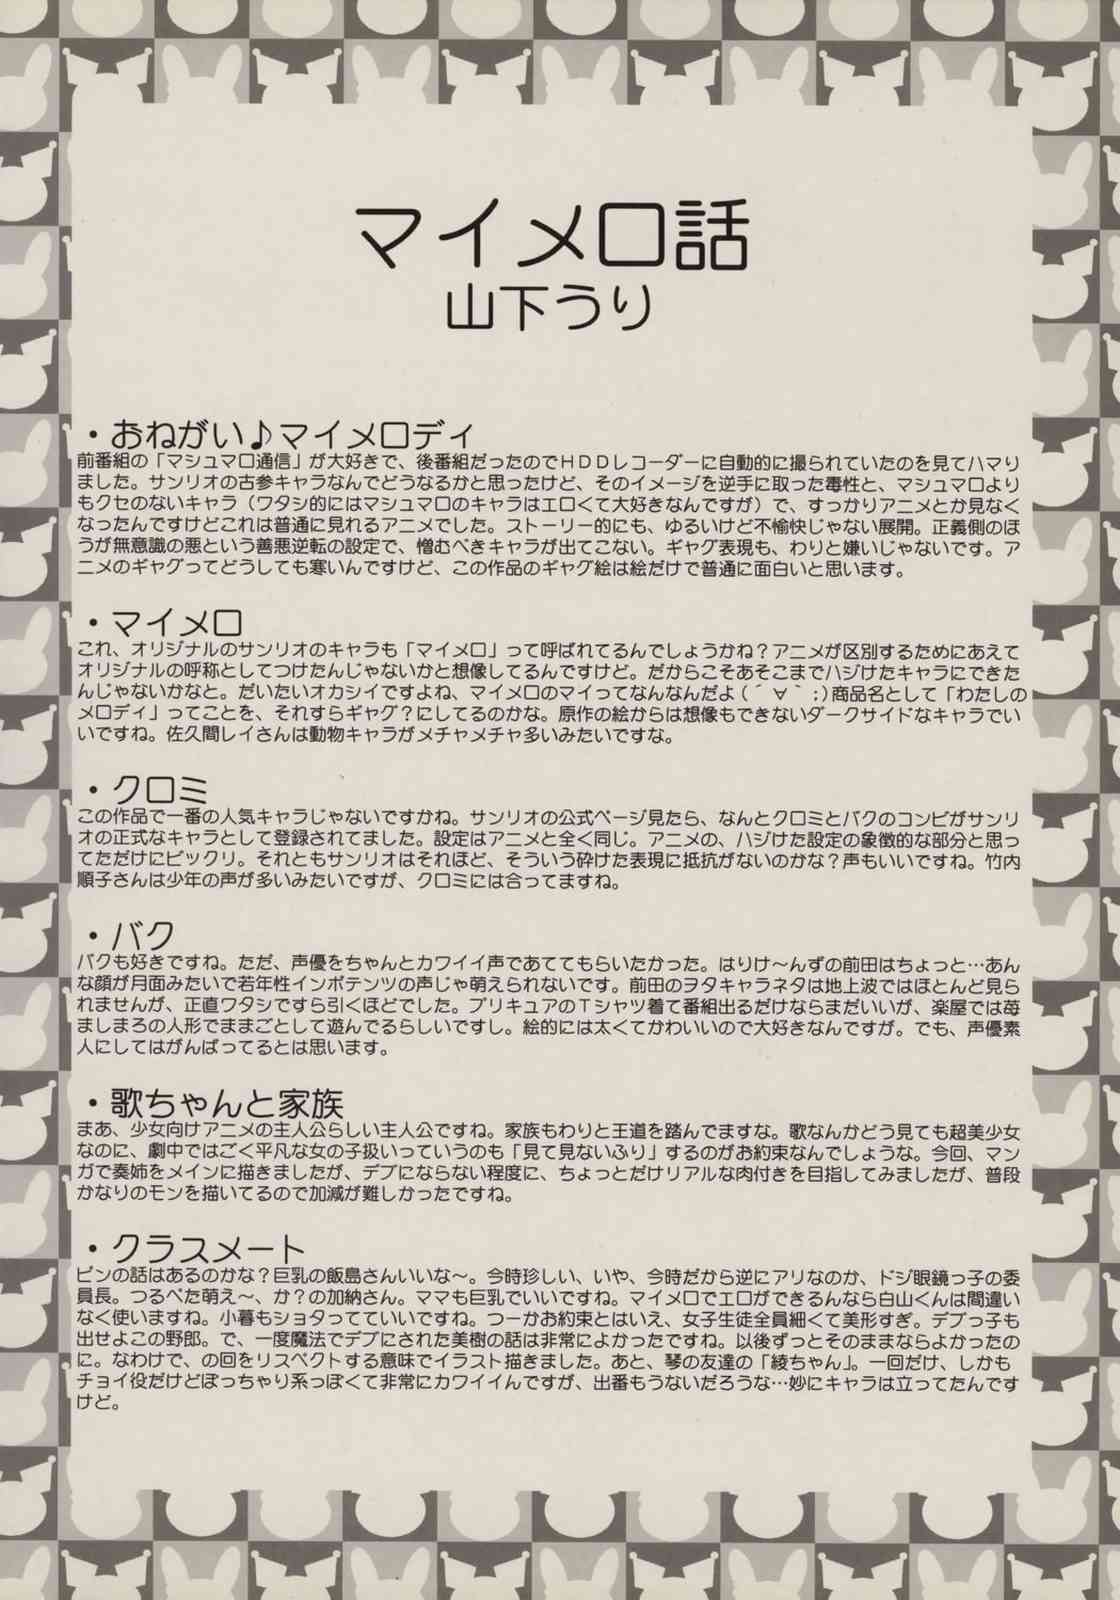 マイメロ話
山下うり
・おねがい♪マイメロディ
前番組の「マシュマロ通信」が大好きで、後番組だったのでＨＤＤレコーダーに自動的に撮られていたのを見てハマり
ました。サンリオの古参キャラなんでどうなるかと思ったけど、そのイメージを逆手に取った毒性と、マシュマロより
もクセのないキャラ（ワタシ的にはマシュマロのキャラはエロくて大好きなんですが）で、すっかりアニメとか見なく
なったんですけどこれは普通に見れるアニメでした。ストーリー的にも、ゆるいけど不愉快じゃない展開。正義側のほ
うが無意識の悪という善悪逆転の設定で、憎むべきキャラが出てこない。ギャグ表現も、わりと嫌いじゃないです。ア
ニメのギャグってどうしても寒いんですけど、この作品のギャグ絵は絵だけで普通に面白いと思います。
・マイメロ
これ、オリジナルのサンリオのキャラも「マイメロ」って呼ばれてるんでしょうかね？アニメが区別するためにあえて
オリジナルの呼称としてつけたんじゃないかと想像してるんですけど。だからこそあそこまでハジけたキャラにできた
んじゃないかなと。だいたいオカシイですよね、マイメロのマイってなんなんだよ(´∀｀;)商品名として「わたしの
メロディ」ってことを、それすらギャグ？にしてるのかな。原作の絵からは想像もできないダークサイドなキャラでい
いですね。佐久間レイさんは動物キャラがメチャメチャ多いみたいですな。
・クロミ
この作品で一番の人気キャラじゃないですかね。サンリオの公式ページ見たら、なんとクロミとバクのコンビがサンリ
オの正式なキャラとして登録されてました。設定はアニメと全く同じ。アニメの、ハジけた設定の象徴的な部分と思っ
てただけにビックリ。それともサンリオはそれほど、そういう砕けた表現に抵抗がないのかな？声もいいですね。竹内
順子さんは少年の声が多いみたいですが、クロミには合ってますね。
・バク
バクも好きですね。ただ、声優をちゃんとカワイイ声であててもらいたかった。はりけ～んずの前田はちょっと…あん
な顔が月面みたいで若年性インポテンツの声じゃ萌えられないです。前田のヲタキャラネタは地上波ではほとんど見ら
れませんが、正直ワタシですら引くほどでした。プリキュアのＴシャツ着て番組出るだけならまだいいが、楽屋では苺
ましまろの人形でままごとして遊んでるらしいですし。絵的には太くてかわいいので大好きなんですが。でも、声優素
人にしてはがんばってるとは思います。
・歌ちゃんと家族
まあ、少女向けアニメの主人公らしい主人公ですね。家族もわりと王道を踏んでますな。歌なんかどう見ても超美少女
なのに、劇中ではごく平凡な女の子扱いっていうのも「見て見ないふり」するのがお約束なんでしょうな。今回、マン
ガで奏姉をメインに描きましたが、デブにならない程度に、ちょっとだけリアルな肉付きを目指してみましたが、普段
かなりのモンを描いてるので加減が難しかったですね。
・クラスメート
ピンの話はあるのかな？巨乳の飯島さんいいな～。今時珍しい、いや、今時だから逆にアリなのか、ドジ眼鏡っ子の委
員長。つるぺた萌え～、か？の加納さん。ママも巨乳でいいですね。マイメロでエロができるんなら白山くんは間違い
なく使いますね。小暮もショタっていていいですね。つーかお約束とはいえ、女子生徒全員細くて美形すぎ。デブっ子も
出せよこの野郎。で、一度魔法でデブにされた美樹の話は非常によかったですね。以後ずっとそのままならよかったの
に。なわけで、の回をリスペクトする意味でイラスト描きました。あと、琴の友達の「綾ちゃん」。一回だけ、しかも
チョイ役だけどぽっちゃり系っぽくて非常にカワイイんですが、出番もうないだろうな…妙にキャラは立ってたんです
けど。